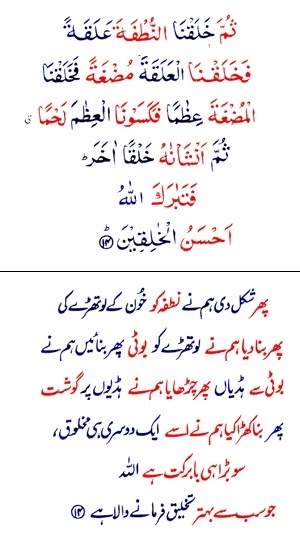 ثُمَّ خَلَقْنَا النُّطْفَةَ عَلَقَةً
فَخَلَقْنَا الْعَلَقَةَ مُضْغَةً فَخَلَقْنَا
الْمُضْغَةَ عِظٰمًا فَكَسَوْنَا الْعِظٰمَ لَحْمًا ۗ
ثُمَّ اَنْشَاْنٰهُ خَلْقًا اٰخَرَ ؕ
فَتَبٰرَكَ اللّٰهُ
اَحْسَنُ الْخٰلِقِيْنَ ؕ ﴿۱۴﴾
پھر شکل دی ہم نے نطفہ کو خُون کے لوتھڑے کی
پھر بنا دیا ہم نے لوتھڑے کو بوٹی پھر بنائیں ہم نے
بوٹی سے ہڈیاں پھر چڑھایا ہم نے ہڈیوں پر گوشت
پھر بنا کھڑا کیا ہم نے اسے ایک دوسری ہی مخلوق ،
سو بڑا ہی بابرکت ہے اللہ
جو سب سے بہتر تخلیق فرمانے والا ہے ﴿۱۴﴾